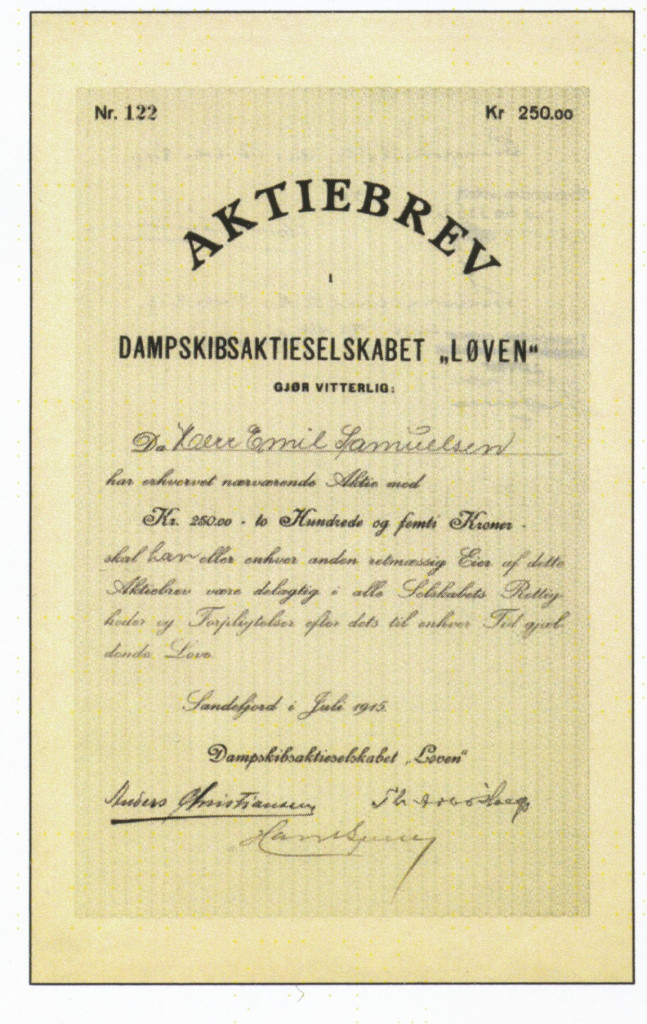 Nr. 122 Kr 250.00
AKTIEBREV
I
DAMPSKIBSAKTIESELSKABET „LØVEN“
GJØR VITTERLIG:
Da Herr Emil Samuelsen
har erhvervet nærværende Aktie med
Kr. 250.00 - to Hundrede og femti Kroner -
skal han eller enhver anden retmæssig Eier af dette
Aktiebrev være delagtig i alle Selskabets Rettig-
heder og Forpligtelser efter dets til enhver Tid gjæl-
dende Love.
Sandefjord i Juli 1915.
Dampskibsaktieselskabet „Løven“
Anders Christiansen